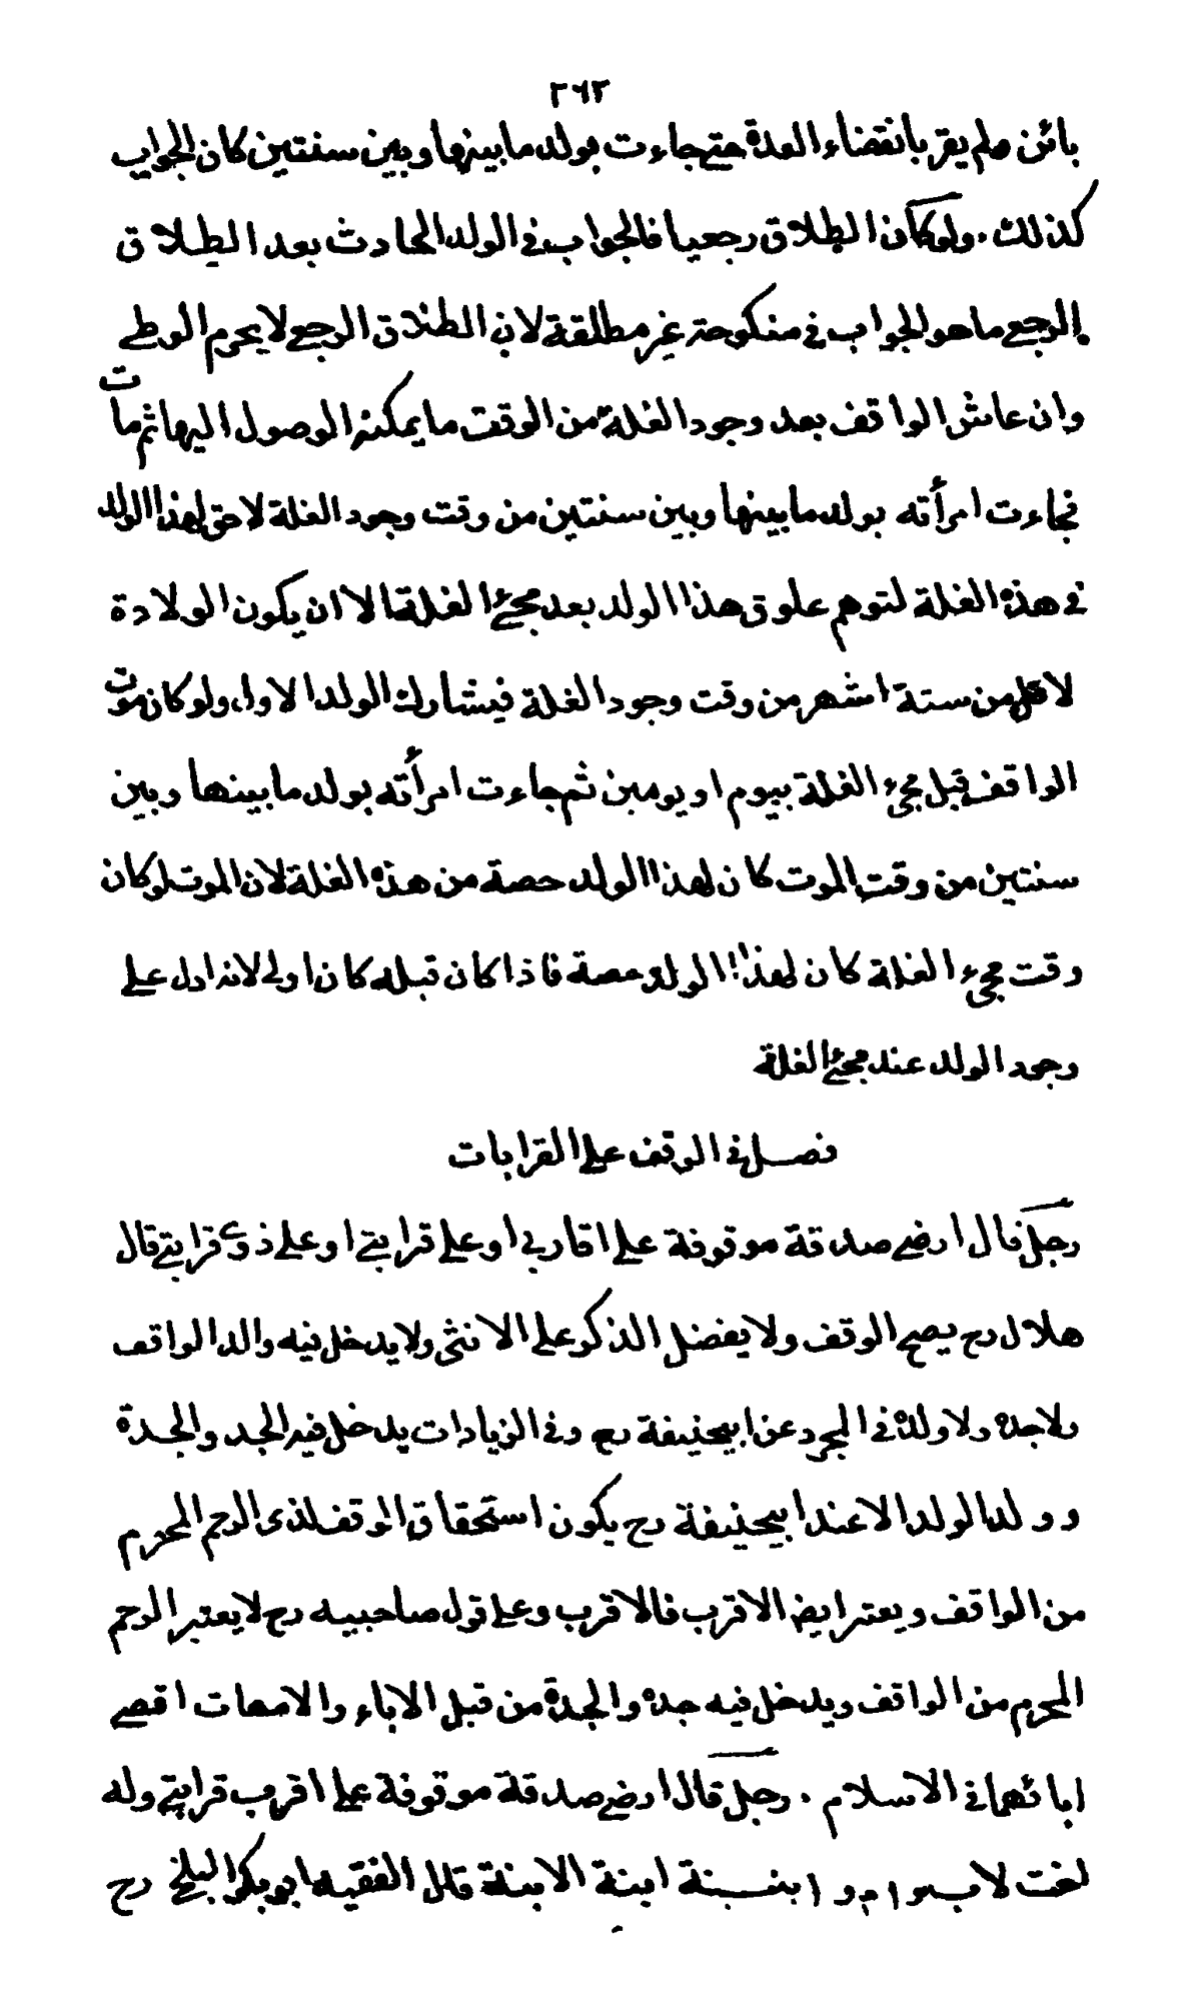 ٢٦٢
بائن ولم يقر بانقضاء العدة حتى جاءت بولد ما بينها وبين سنتين كان الجواب
كذلك . ولو كان الطلاق رجعيا فالجواب في الولد الحادث بعد الطلاق
الرجعي ما هو الجواب في منكوحة غير مطلقة لان الطلاق الرجعي لا يحرم الوطي
وان عاش الواقف بعد وجود الغلة من الوقت ما يمكنه الوصول اليها ثم مات
فجاءت امرأته بولد ما بينها وبين سنتين من وقت وجود الغلة لا حق لهذا الولد
في هذه الغلة لتوهم علوق هذا الولد بعد مجئ الغلة الا ان يكون الولادة
لاقل من ستة اشهر من وقت وجود الغلة فيشارك الولد الاول ولو كان موت
الواقف قبل مجئ الغلة بيوم او يومين ثم جاءت امرأته بولد ما بينها وبين
سنتين من وقت الموت كان لهذا الولد حصة من هذه الغلة لان الموت لو كان
وقت مجئ الغلة كان لهذا الولد حصة فاذا كان قبله كان اولى لانه ادل على
وجود الولد عند مجئ الغلة
فصل في الوقف على القرابات
رجل قال ارضي صدقة موقوفة على اقاربي او على قرابتي او على ذوي قرابتي قال
هلال رح يصح الوقف ولا يفضل الذكر على الانثى ولا يدخل فيه والد الواقف
ولا جده ولا ولده في المجرد عن ابيحنيفة رح وفي الزيادات يدخل فيه الجد والجدة
وولد الولد الا عند ابيحنيفة رح يكون استحقاق الوقف لذى الرحم المحرم
من الواقف ويعتبر ايضا الاقرب فالاقرب وعلى قول صاحبيه رح لا يعتبر الرحم
المحرم من الواقف ويدخل فيه جده والجدة من قبل الاباء والامهات اقصى
ابائهما في الاسلام . رجل قال ارضي صدقة موقوفة على اقرب قرابتي وله
اخت لاب وام و ابنة ابنة الابنة قال الفقيه ابو بكر البلخي رح